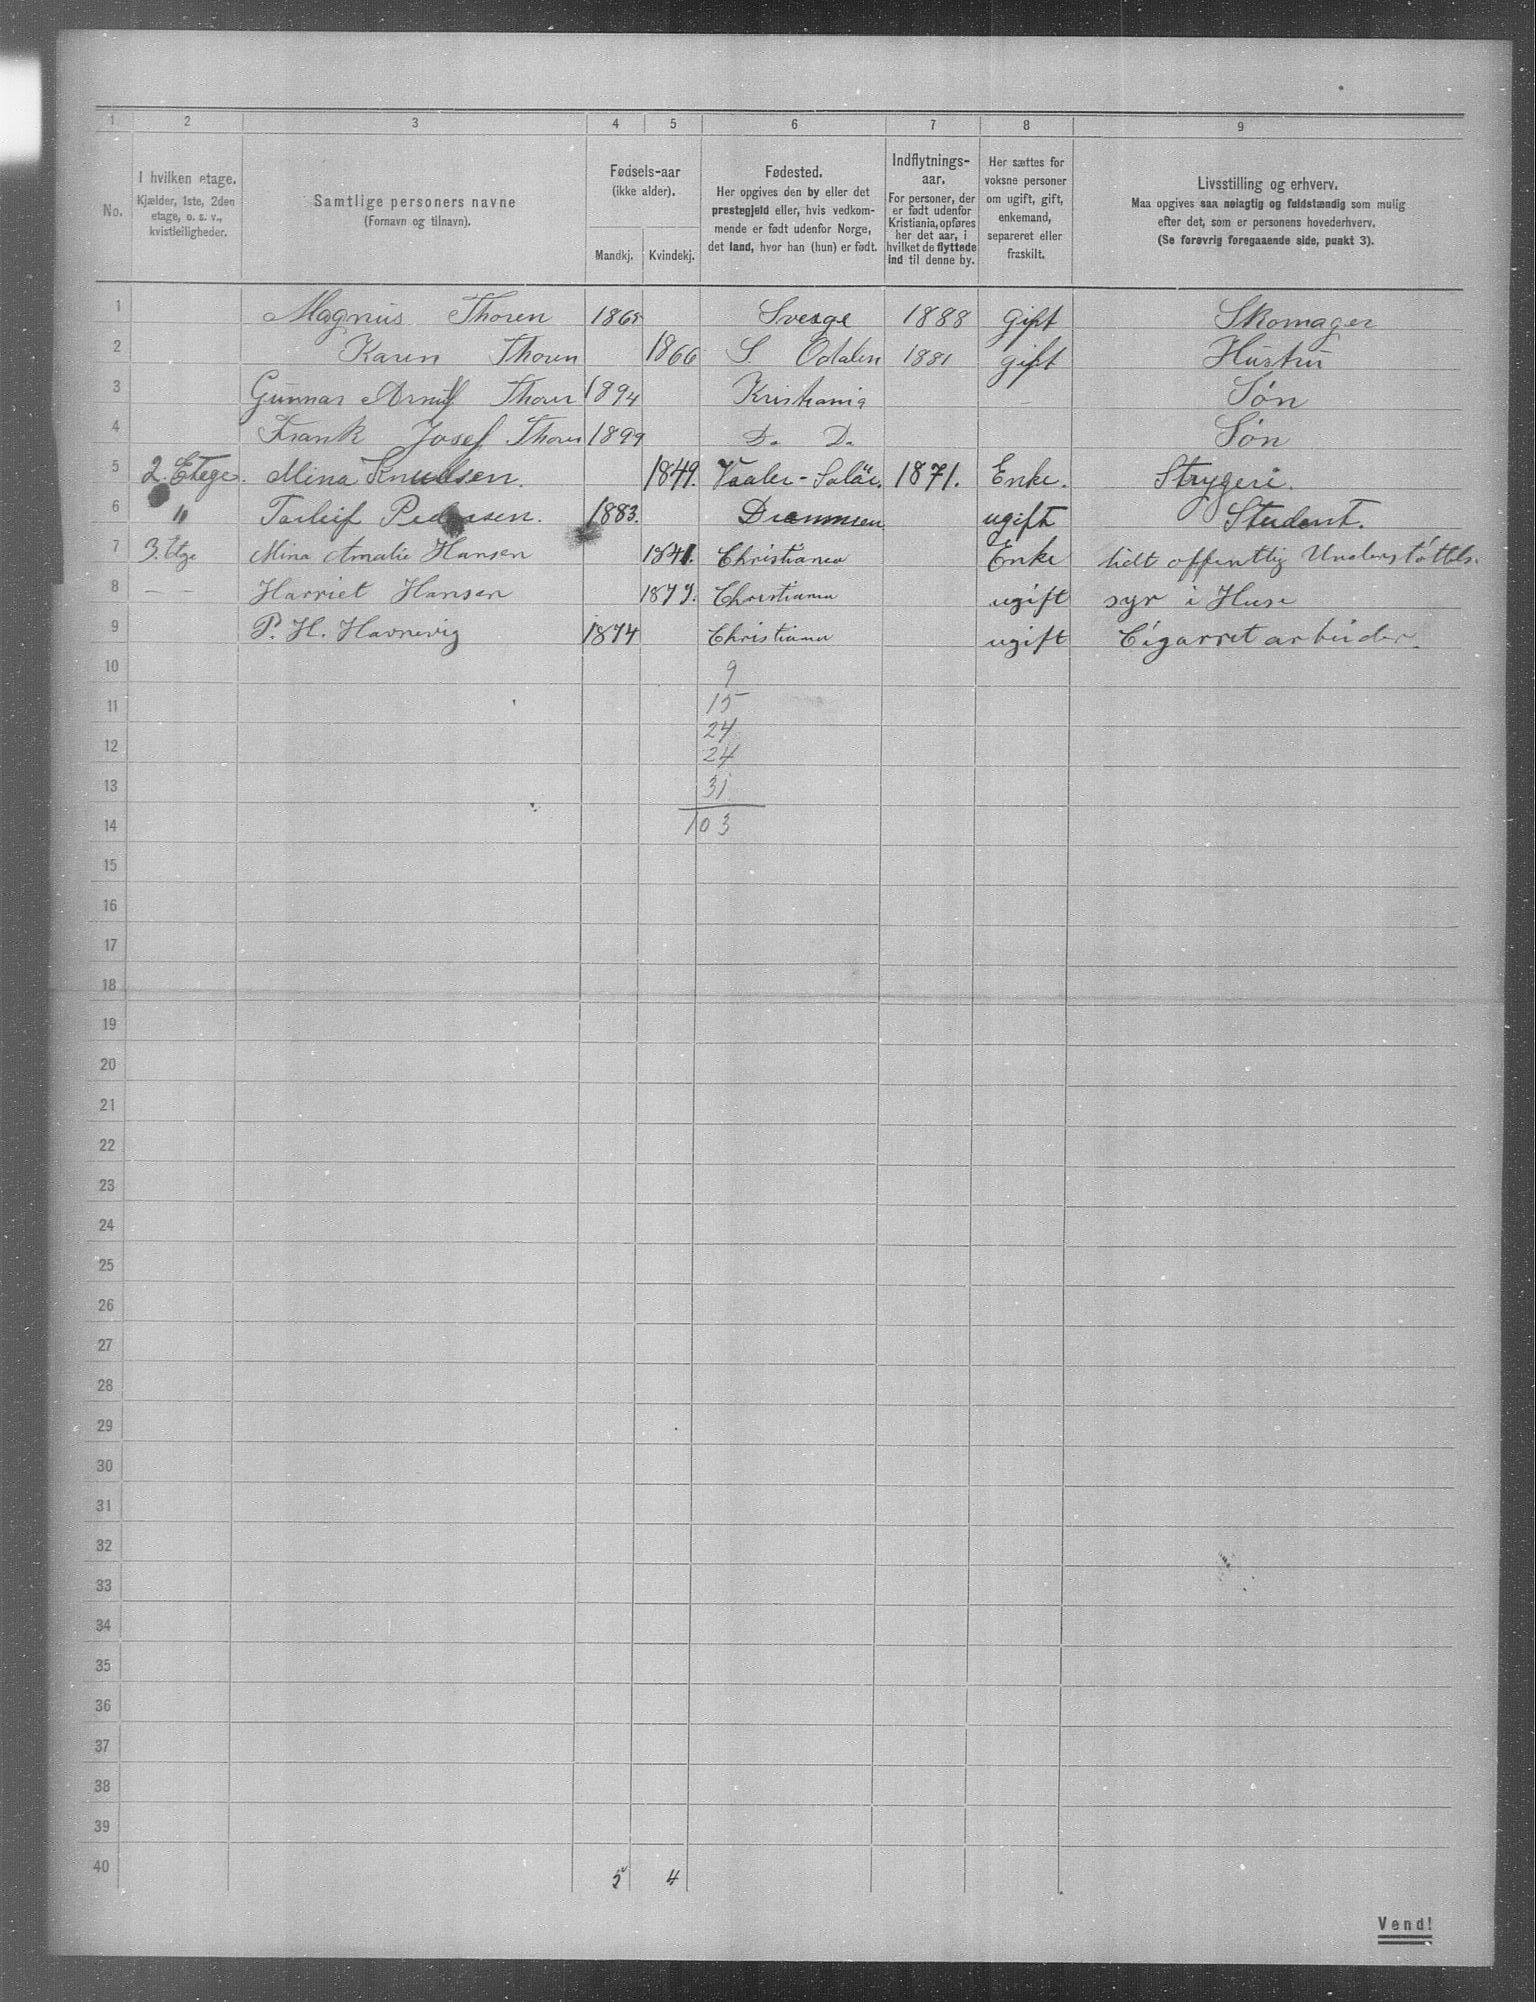 1 2 3 4 5 6 7 8 9
No.
I hvilken etage.
Kjælder, 1ste, 2den
etage, o. s. v.,
kvistleiligheder.
Samtlige personers navne
(Fornavn og tilnavn).
Fødsels-aar
(ikke alder).
Mandkj. Kvindekj.
Fødested.
Her opgives den by eller det
prestegjeld eller, hvis vedkom-
mende er født udenfor Norge,
det land, hvor han (hun) er født.
Indflytnings-
aar.
For personer, der
er født udenfor
Kristiania, opføres
her det aar, i
hvilket de flyttede
ind til denne by.
Her sættes for
voksne personer
om ugift, gift,
enkemand,
separeret eller
fraskilt.
Livsstilling og erhverv.
Maa opgives saa nøiagtig og fuldstændig som mulig
efter det, som er personens hovederhverv.
(Se forøvrig foregaaende side, punkt 3).
1 Magnus Thoren 1865 Sverge 1888 Gift Skomager
2 Karen Thoren 1866 S. Odalen 1881 gift Hustru
3 Gunnar Thoren 1894 Kristiania Søn
4 Frank Josef Thoren 1899 Do Do Søn
5 2. Etege. Mina Knudsen. 1849. Vaaler-Solör. 1871. Enke. Strygeri.
6 " Torleif Pedersen. 1883. Drammen ugift Student.
7 3. Etge Mina Amalie Hansen 1841. Christiania Enke lidt offentlig Understøttels.
8 — — Harriet Hansen 1879. Christiania ugift syr i Huse
9 P. H. Havnevig 1874 Christiania ugift Cigarret arbeider.
10 9
11 15
12 24
24
13 31
14 103
15
16
17
18
19
20
21
22
23
24
25
26
27
28
29
30
31
32
33
34
35
36
37
38
39
40 5 4
Vend!